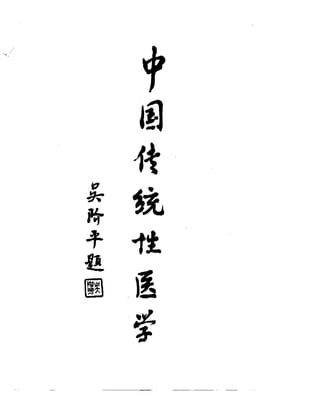 中国传统性医学
吴阶平题